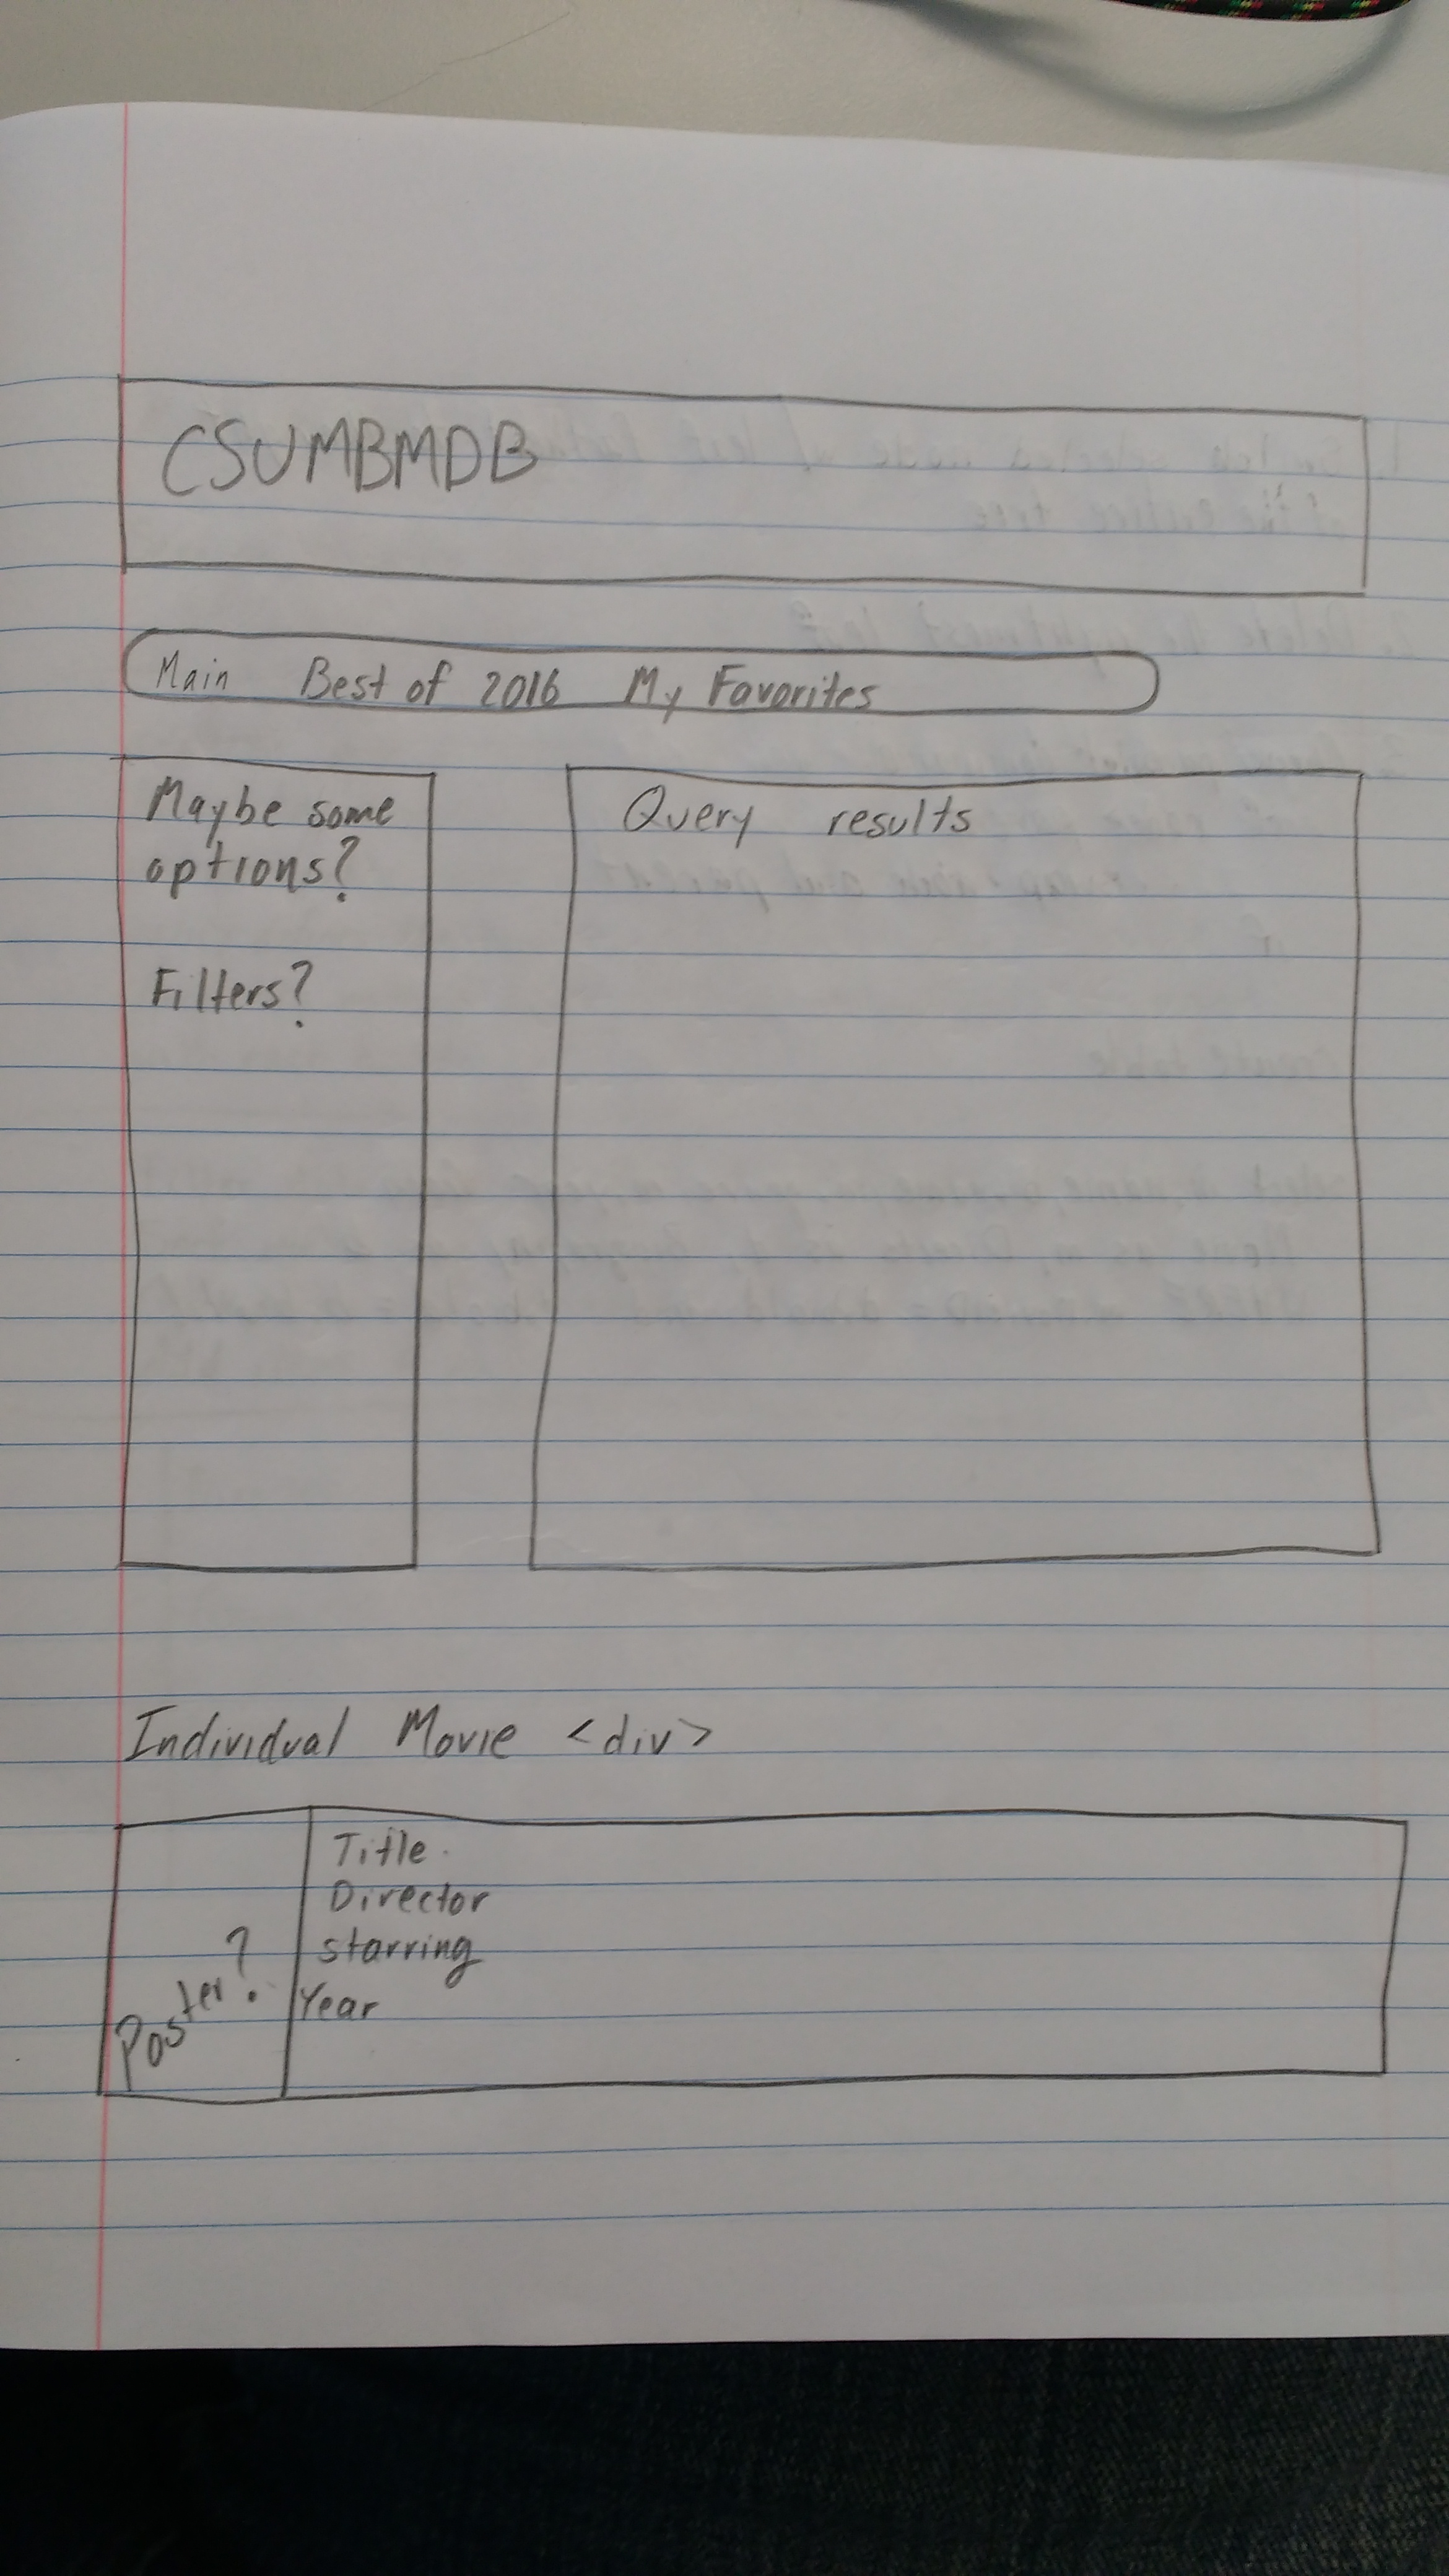 CSUMBMDB
Main Best of 2016 My Favorites
Maybe some
options?
Filters?
Query results
Individual Movie <div>
Poster?
Title
Director
starring
Year